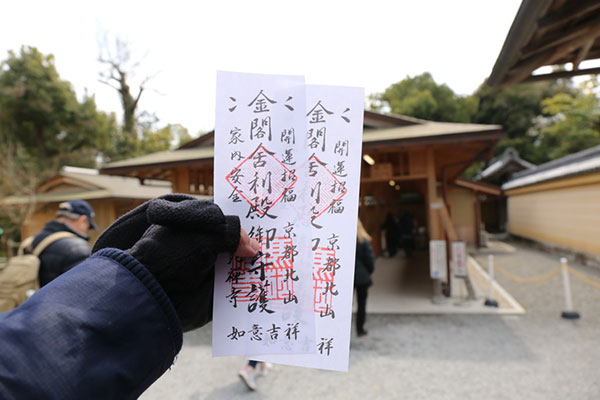 開運招福 京都北山
金閣舎利殿御守護
家内安全 禅寺
如意吉祥
開運招福 京都北山
金閣舎利
祥